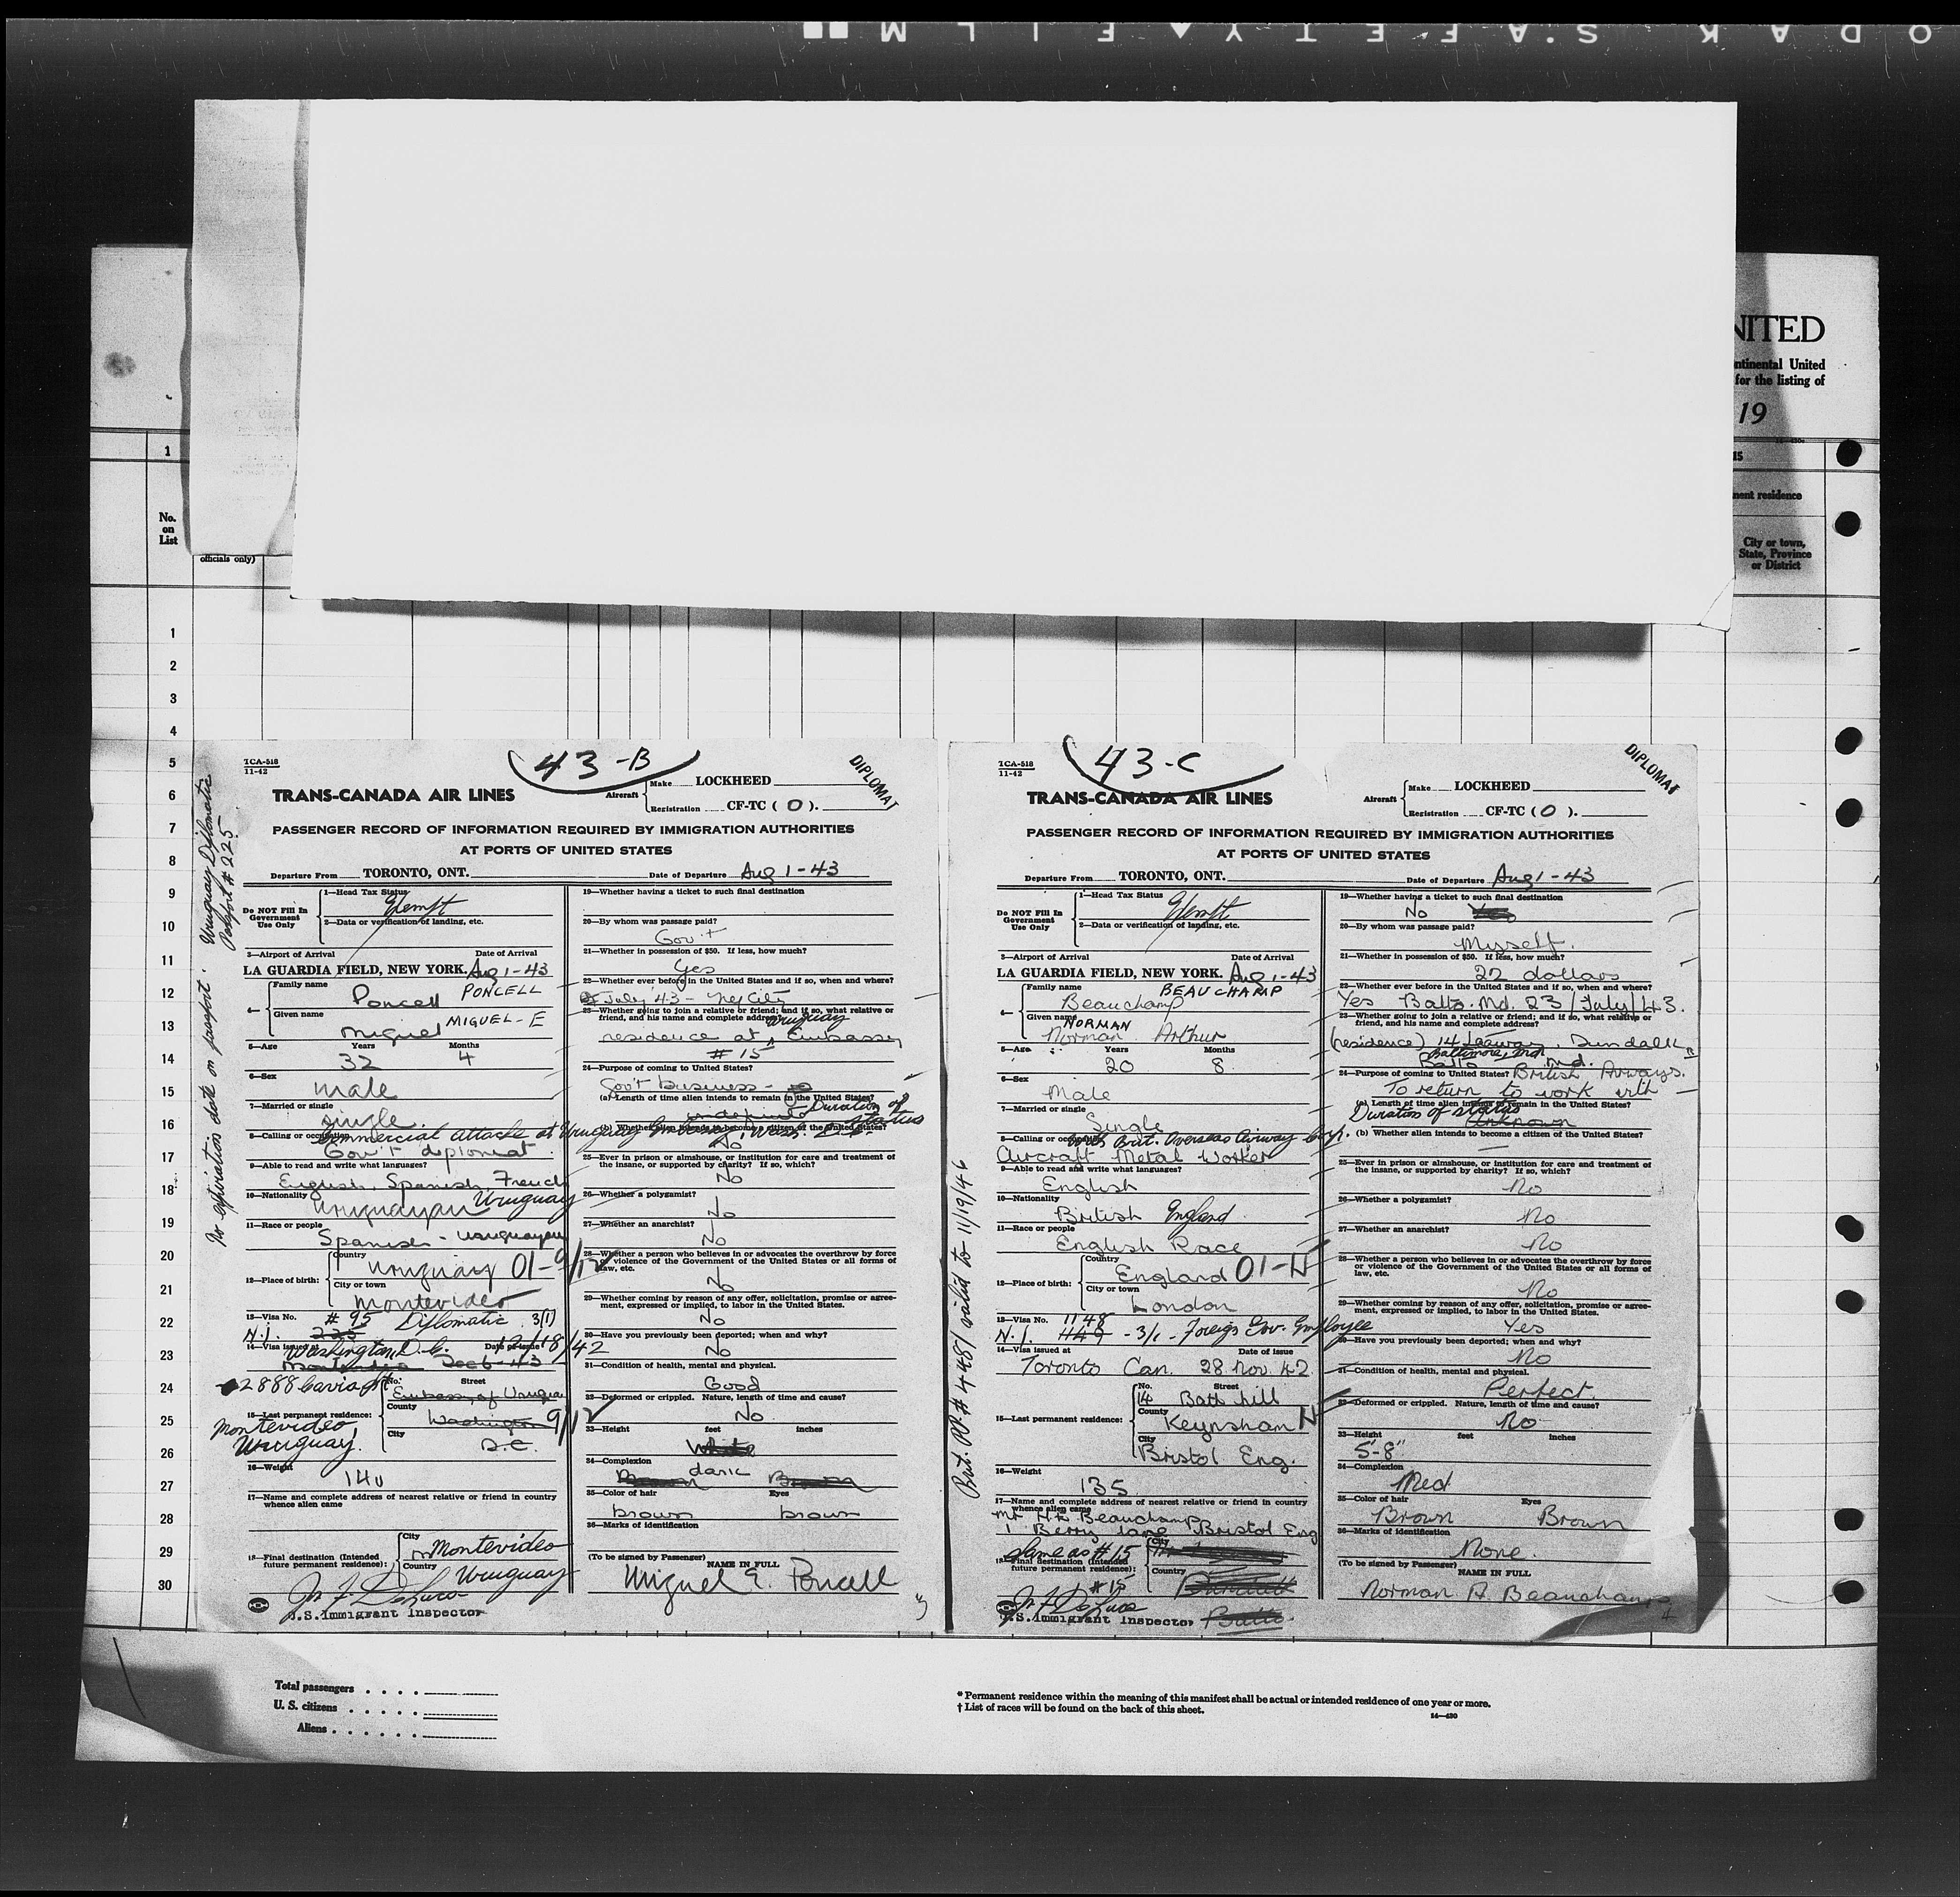 KODAK S.AFETY▲FILM
UNITED
Continental United
for the listing of
19
1
15
No.
on
List
officials only)
City or town,
State, Province
or District
1
2
3
4
5
6
7
8
9
10
11
12
13
14
15
16
17
18
19
20
21
22
23
24
25
26
27
28
29
30
No expiration date on passport. Uruguay Diplomatic
Passport # 225
TCA-518
11-42
43-B
DIPLOMAT
TRANS-CANADA AIR LINES
Aircraft
Make LOCKHEED
Registration CF-TC ( O ).
PASSENGER RECORD OF INFORMATION REQUIRED BY IMMIGRATION AUTHORITIES
AT PORTS OF UNITED STATES
Departure From TORONTO, ONT. Date of Departure Aug 1-43
Do NOT Fill In
Government
Use Only
1—Head Tax Status
Exempt
2—Data or verification of landing, etc.
3—Airport of Arrival Date of Arrival
LA GUARDIA FIELD, NEW YORK. Aug 1-43
4—
Family name
Poncell PONCELL
Given name
Miguel MIGUEL-E
5—Age Years Months
32 4
6—Sex
male
7—Married or single
single.
8—Calling or occupation
Commercial attache at Uruguay Embassy, Wash. D.C.
Gov't diplomat.
9—Able to read and write what languages?
English, Spanish, French
10—Nationality
Uruguayan Uruguay
11—Race or people
Spanish - Uruguayan
12—Place of birth:
Country
Uruguay 01-9/12
City or town
Montevideo
13—Visa No. # 95 Diplomatic 3(1)
N.I. 225
14—Visa issued at Date of issue
Washington D.C. 12/18/42
Montevideo Dec 6-43
2888 Gavia St
No. Street
Embassy of Uruguay
15—Last permanent residence:
County
Washington 9/12
Montevideo,
Uruguay.
City
D.C.
16—Weight
140
17—Name and complete address of nearest relative or friend in country
whence alien came
18—Final destination (Intended
future permanent residence):
City
Montevideo
Country
Uruguay
U.S. Immigrant Inspector
19—Whether having a ticket to such final destination
20—By whom was passage paid?
Gov't
21—Whether in possession of $50. If less, how much?
Yes
22—Whether ever before in the United States and if so, when and where?
July 43 - NY City
23—Whether going to join a relative or friend; and if so, what relative or
friend, and his name and complete address?
Uruguay
residence at Embassy
# 15
24—Purpose of coming to United States?
Gov't business -
(a) Length of time alien intends to remain in the United States?
indefinite Duration of status
(b) Whether alien intends to become a citizen of the United States?
No
25—Ever in prison or almshouse, or institution for care and treatment of
the insane, or supported by charity? If so, which?
No
26—Whether a polygamist?
No
27—Whether an anarchist?
No
28—Whether a person who believes in or advocates the overthrow by force
or violence of the Government of the United States or all forms of
law, etc.
No
29—Whether coming by reason of any offer, solicitation, promise or agree-
ment, expressed or implied, to labor in the United States.
No
30—Have you previously been deported; when and why?
No
31—Condition of health, mental and physical.
Good
32—Deformed or crippled. Nature, length of time and cause?
No
33—Height feet inches
White
34—Complexion
dark
Brown Brown
35—Color of hair Eyes
brown brown
36—Marks of identification
(To be signed by Passenger) NAME IN FULL
Miguel E. Poncell
Brit. PP. # 4481 valid to 11/19/46
TCA-518
11-42
43-C
DIPLOMAT
TRANS-CANADA AIR LINES
Aircraft
Make LOCKHEED
Registration CF-TC ( O ).
PASSENGER RECORD OF INFORMATION REQUIRED BY IMMIGRATION AUTHORITIES
AT PORTS OF UNITED STATES
Departure From TORONTO, ONT. Date of Departure Aug 1-43
Do NOT Fill In
Government
Use Only
1—Head Tax Status
Exempt
2—Data or verification of landing, etc.
3—Airport of Arrival Date of Arrival
LA GUARDIA FIELD, NEW YORK. Aug 1-43
4—
Family name
Beauchamp BEAUCHAMP
Given name
NORMAN
Norman Arthur
5—Age Years Months
20 8
6—Sex
Male
7—Married or single
Single
8—Calling or occupation
with Brit. Overseas Airway Corp.
Aircraft Metal Worker
9—Able to read and write what languages?
English
10—Nationality
British England
11—Race or people
English Race
12—Place of birth:
Country
England 01-H
City or town
London
13—Visa No. 1148
N.I. 449 - 3/1 - Foreign Gov. Employee
14—Visa issued at Date of issue
Toronto Can. 28 Nov. 42
15—Last permanent residence:
No. Street
14 Bath hill
County
Keynsham H
City
Bristol Eng.
16—Weight
135
17—Name and complete address of nearest relative or friend in country
whence alien came
Mr H.E. Beauchamp
1 Berry lane Bristol Eng
Same as # 15
18—Final destination (Intended
future permanent residence):
City
Country
# 15
Dundalk
Balto.
U.S. Immigrant Inspector
19—Whether having a ticket to such final destination
No Yes
20—By whom was passage paid?
Myself.
21—Whether in possession of $50. If less, how much?
22 dollars
22—Whether ever before in the United States and if so, when and where?
Yes Balto. Md. 23/July/43.
23—Whether going to join a relative or friend; and if so, what relative or
friend, and his name and complete address?
(residence) 14 Leeway, Dundalk
Baltimore, Md.
Balto. Md.
24—Purpose of coming to United States? British Airways.
To return to work with
(a) Length of time alien intends to remain in the United States?
Duration of status
Unknown
(b) Whether alien intends to become a citizen of the United States?
25—Ever in prison or almshouse, or institution for care and treatment of
the insane, or supported by charity? If so, which?
No
26—Whether a polygamist?
No
27—Whether an anarchist?
No
28—Whether a person who believes in or advocates the overthrow by force
or violence of the Government of the United States or all forms of
law, etc.
No
29—Whether coming by reason of any offer, solicitation, promise or agree-
ment, expressed or implied, to labor in the United States.
Yes
30—Have you previously been deported; when and why?
No
31—Condition of health, mental and physical.
Perfect.
32—Deformed or crippled. Nature, length of time and cause?
No
33—Height feet inches
5'-8"
34—Complexion
Med
35—Color of hair Eyes
Brown Brown
36—Marks of identification
None.
(To be signed by Passenger) NAME IN FULL
Norman A. Beauchamp
Total passengers
U. S. citizens
Aliens
* Permanent residence within the meaning of this manifest shall be actual or intended residence of one year or more.
† List of races will be found on the back of this sheet.